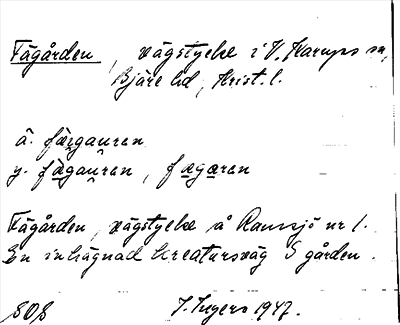 Fägården, vägstycke i V. Karups sn,
Bjäre hd, Krist. l.
ä. fægauren
y. fægauren, fægaren
Fägården, vägstycke å Ramsjö nr 1.
En inhägnad kreatursväg S gården.
I. Ingers 1947.